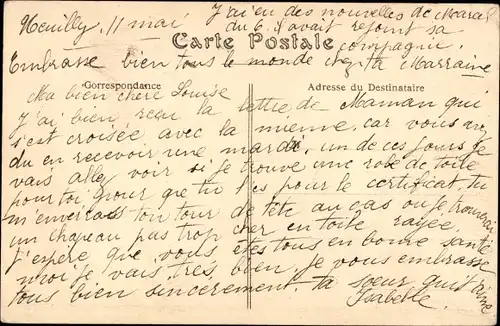 Neuilly, 11 mai J'ai eu des nouvelles de Marcel
du 6. Il avait rejoint sa
Carte Postale
compagnie
Embrasse bien tous le monde chez ta Marraine
Correspondance Adresse du Destinataire
Ma bien chère Louise
J'ai bien reçu la lettre de Maman qui
s'est croisée avec la mienne, car vous avez
du en recevoir une mardi, un de ces jours je
vais aller voir si je trouve une robe de toile
pour toi pour que tu l'es pour le certificat, tu
m'enverras ton tour de tête au cas ou je trouverai
un chapeau pas trop cher en toile rayée.
J'espère que vous êtes tous en bonne santé
moi je vais très bien, je vous embrasse
tous bien sincèrement. ta sœur qui t'aime
Isabelle.